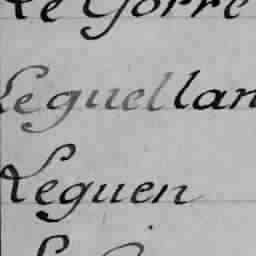 Le Gorre
Leguellan
Leguen